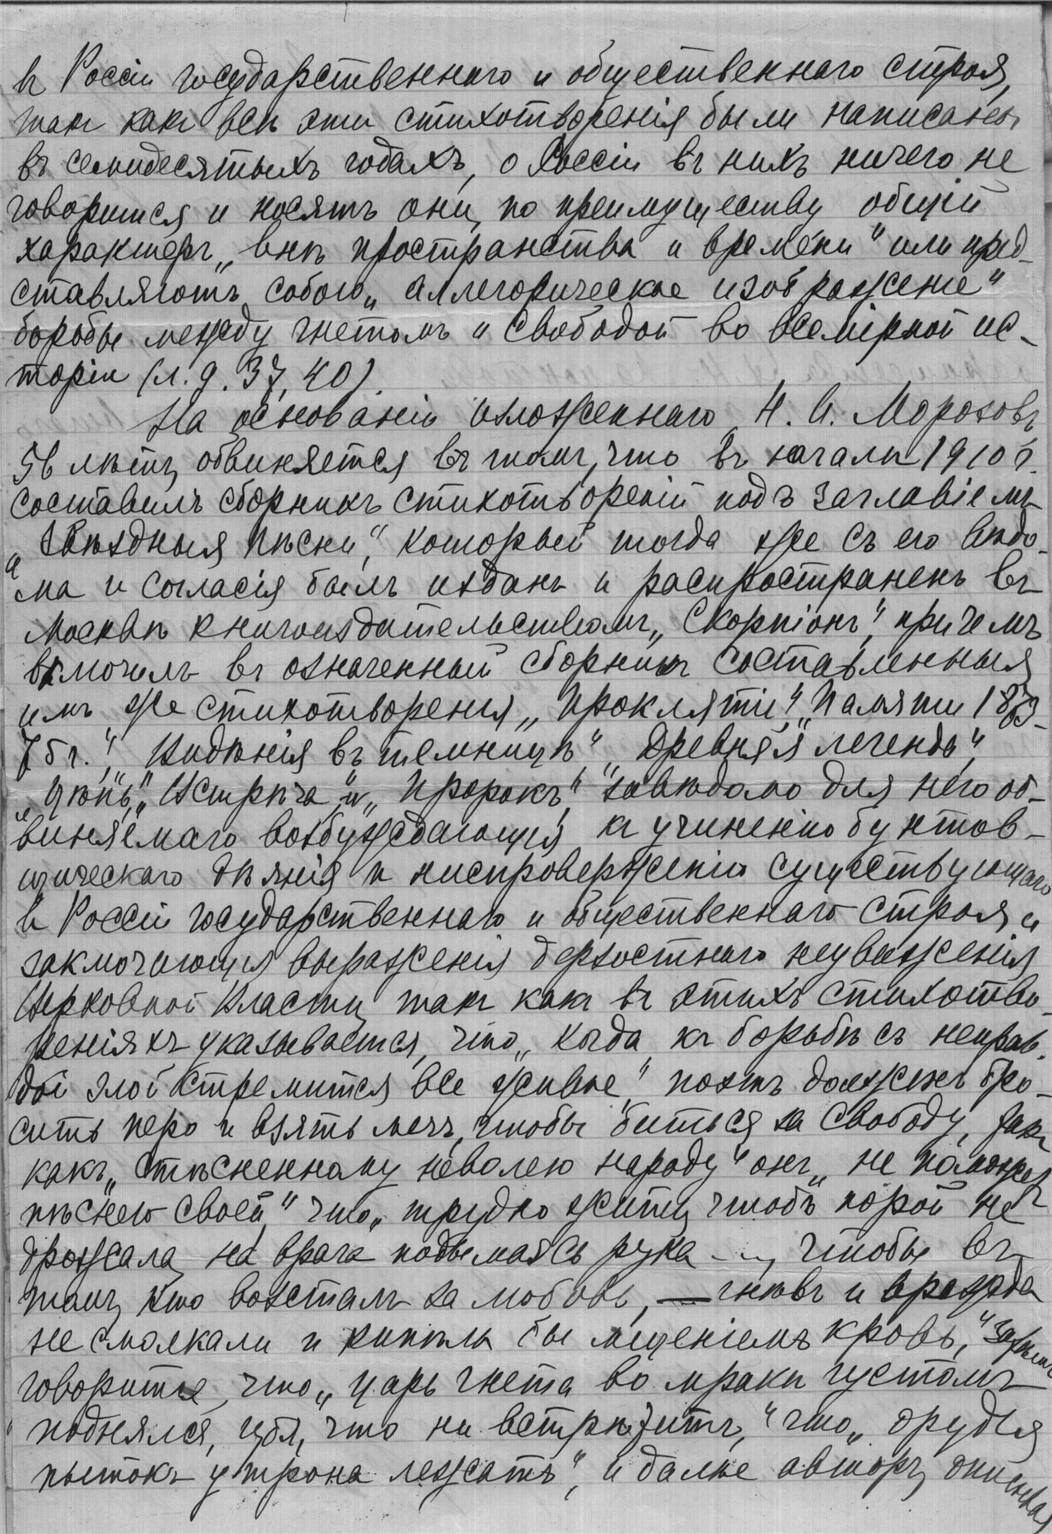 въ Россіи государственнаго и общественнаго строя,
такъ какъ всѣ эти стихотворенія были написаны
въ семидесятыхъ годахъ, о Россіи въ нихъ ничего не
говорится и носятъ они, по преимуществу общій
характеръ „внѣ пространства и времени" или пред-
ставляютъ собою „аллегорическое изображеніе"
борьбы между гнетомъ и свободой во всемірной ис-
торіи (л. д. 37, 40).
На основаніи изложеннаго, Н. А. Морозовъ
56 лѣтъ, обвиняется въ томъ, что въ началѣ 1910 г.
составилъ сборникъ стихотвореній подъ заглавіемъ
„Звѣздныя пѣсни", который тогда же съ его вѣдо-
ма и согласія былъ изданъ и распространенъ въ
Москвѣ книгоиздательствомъ „Скорпіонъ", причемъ
включилъ въ означенный сборникъ составленныя
имъ же стихотворенія „Проклятіе", „Памяти 1873-
75 г.", „Видѣнія въ темницѣ", „Древняя легенда",
„Цѣпь", „Встрѣча" и „Пророкъ", завѣдомо для него об-
виняемаго возбуждающія къ учиненію бунтов-
щическаго дѣянія и ниспроверженію существующаго
въ Россіи государственнаго и общественнаго строя и
заключающія выраженія дерзостнаго неуваженія
Верховной Власти, такъ какъ въ этихъ стихотво-
реніяхъ указывается, что „когда къ борьбѣ съ неправ-
дой злой стремится все живое", поэтъ долженъ бро-
сить перо и взять мечъ, чтобы биться за свободу, такъ
какъ „стѣсненному неволею народу" онъ „не поможетъ
пѣснею своей", что „трудно жить, чтобъ порой не
дрожала, на врага подымаясь рука ... , чтобы въ
томъ, кто возсталъ за любовь, — гнѣвъ и вражда
не смолкали и кипѣла бы мщеніемъ кровь",
говорится, что „царь гнета во мракѣ густомъ
поднялся, губя, что ни встрѣтитъ", что „орудія
пытокъ у трона лежатъ", и далѣе авторъ, описывая